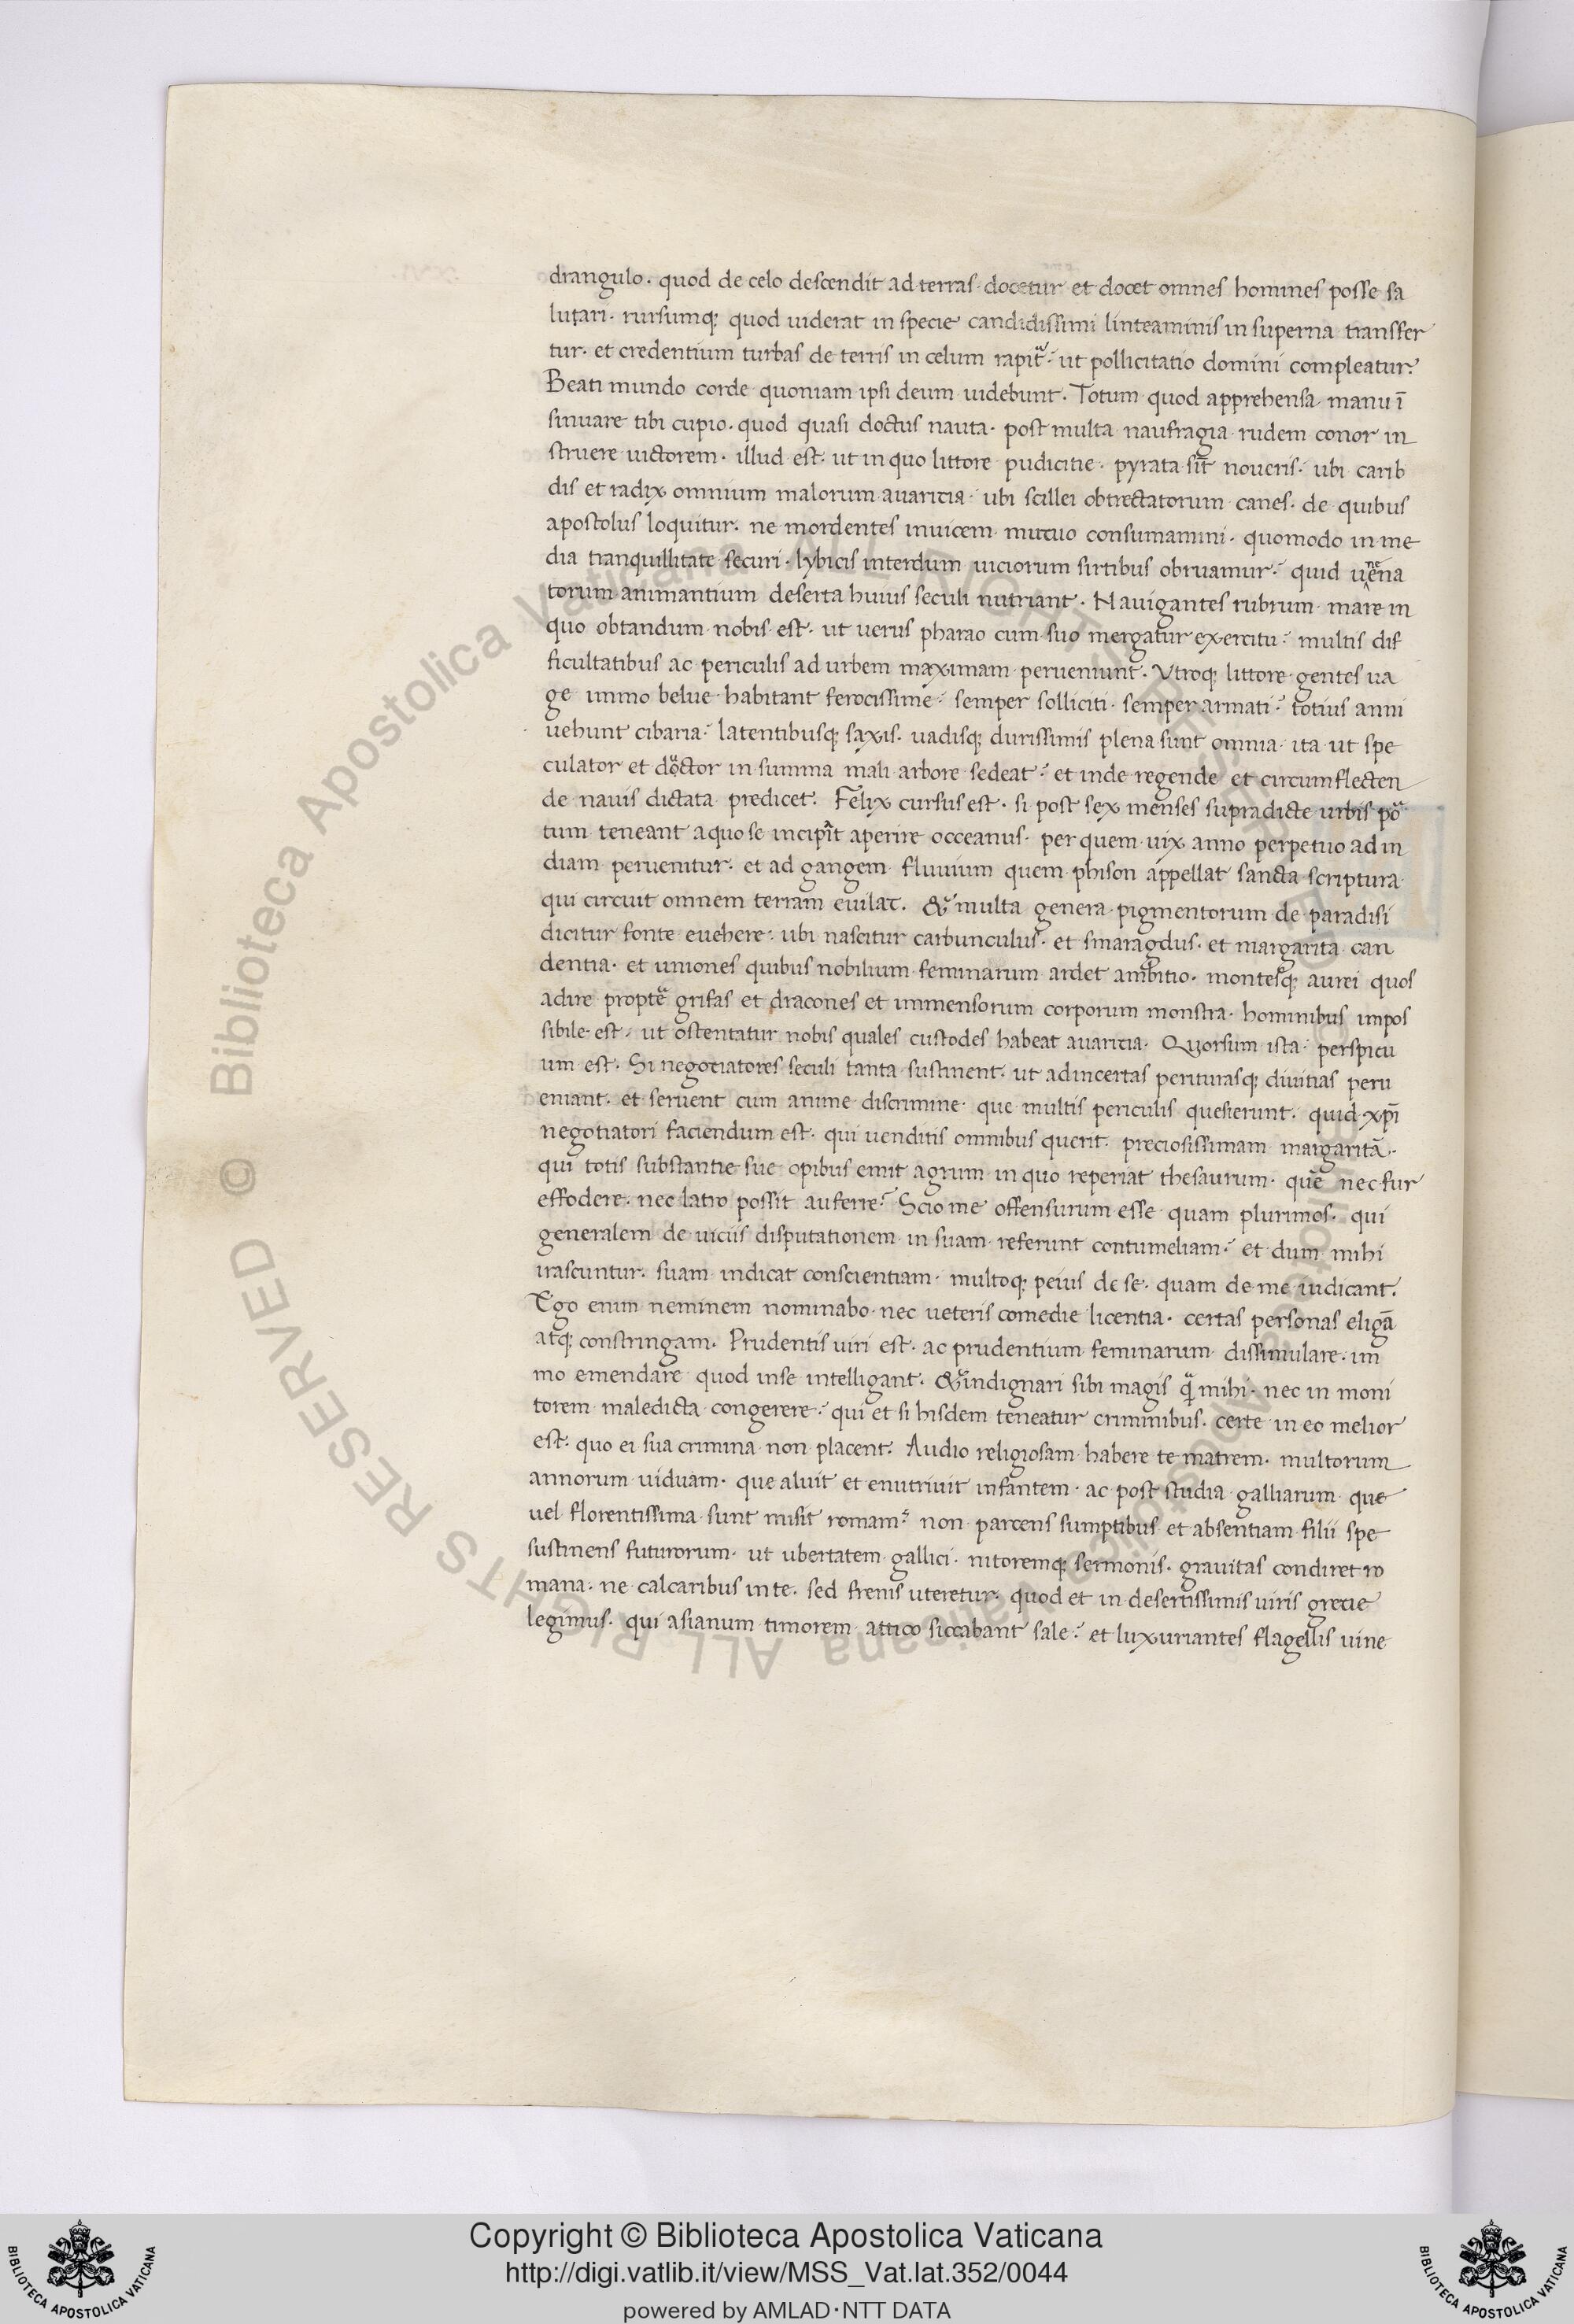 drangulo. quod de celo descendit ad terras. docetur et docet omnes homines posse sa
lutari. rursumq; quod uiderat in specie candidissimi linteaminis in superna transfer
tur. et credentium turbas de terris in celum rapit᷑. ut pollicitatio domini compleatur.
Beati mundo corde quoniam ipsi deum uidebunt. Totum quod apprehensa manu ī
sinuare tibi cupio. quod quasi doctus nauta. post multa naufragia rudem conor in
struere uictorem. illud est. ut in quo littore pudicitie. pyrata sit noueris. ubi carib
dis et radix omnium malorum auaritia. ubi scillei obtrectatorum canes. de quibus
apostolus loquitur. ne mordentes inuicem mutuo consumamini. quomodo in me
dia tranquillitate securi. lybicis interdum uiciorum sirtibus obruamur. quid uenena
torum animantium deserta huius seculi nutriant. Nauigantes rubrum mare in
quo obtandum nobis est. ut uerus pharao cum suo mergatur exercitu. multis dif
ficultatibus ac periculis ad urbem maximam perueniunt. Vtroq; littore gentes ua
ge immo belue habitant ferocissime. semper solliciti. semper armati. totius anni
uehunt cibaria. latentibusq; saxis. uadisq; durissimis plena sunt omnia. ita ut spe
culator et doctor in summa mali arbore sedeat. et inde regende et circumflecten
de nauis dictata predicet. Felix cursus est. si post sex menses supradicte urbis por
tum teneant a quo se incipit aperire occeanus. per quem uix anno perpetuo ad in
diam peruenitur. et ad gangem fluuium quem phison appellat sancta scriptura
qui circuit omnem terram euilat. & multa genera pigmentorum de paradisi
dicitur fonte euehere. ubi nascitur carbunculus. et smaragdus. et margarita can
dentia. et uniones quibus nobilium feminarum ardet ambitio. montesq; aurei quos
adire propter grifas et dracones et immensorum corporum monstra. hominibus impos
sibile est. ut ostentatur nobis quales custodes habeat auaritia. Quorsum ista. perspicu
um est. Si negotiatores seculi tanta sustinent. ut ad incertas periturasq; diuitias peru
eniant. et seruent cum anime discrimine que multis periculis quesierunt. quid xp̄i
negotiatori faciendum est. qui uenditis omnibus querit preciosissimam margaritā.
qui totis substantie sue opibus emit agrum in quo reperiat thesaurum. quē nec fur
effodere. nec latro possit auferre. Scio me offensurum esse quam plurimos. qui
generalem de uiciis disputationem in suam referunt contumeliam. et dum mihi
irascuntur. suam indicat conscientiam. multoq; peius de se. quam de me iudicant.
Ego enim neminem nominabo nec ueteris comedie licentia. certas personas eligā
atq; constringam. Prudentis uiri est. ac prudentium feminarum dissimulare. im
mo emendare quod in se intelligant. & indignari sibi magis q̄ mihi. nec in moni
torem maledicta congerere. qui et si hisdem teneatur criminibus. certe in eo melior
est. quo ei sua crimina non placent. Audio religiosam habere te matrem. multorum
annorum uiduam. que aluit et enutriuit infantem. ac post studia galliarum que
uel florentissima sunt misit romam. non parcens sumptibus et absentiam filii spe
sustinens futurorum. ut ubertatem gallici. nitoremq; sermonis. grauitas condiret ro
mana. ne calcaribus in te. sed frenis uteretur. quod et in desertissimis uiris grecie
legimus. qui asianum timorem attico siccabant sale. et luxuriantes flagellis uine
© Biblioteca Apostolica Vaticana ALL RIGHTS RESERVED
Copyright © Biblioteca Apostolica Vaticana
http://digi.vatlib.it/view/MSS_Vat.lat.352/0044
powered by AMLAD·NTT DATA
BIBLIOTECA APOSTOLICA VATICANA
BIBLIOTECA APOSTOLICA VATICANA